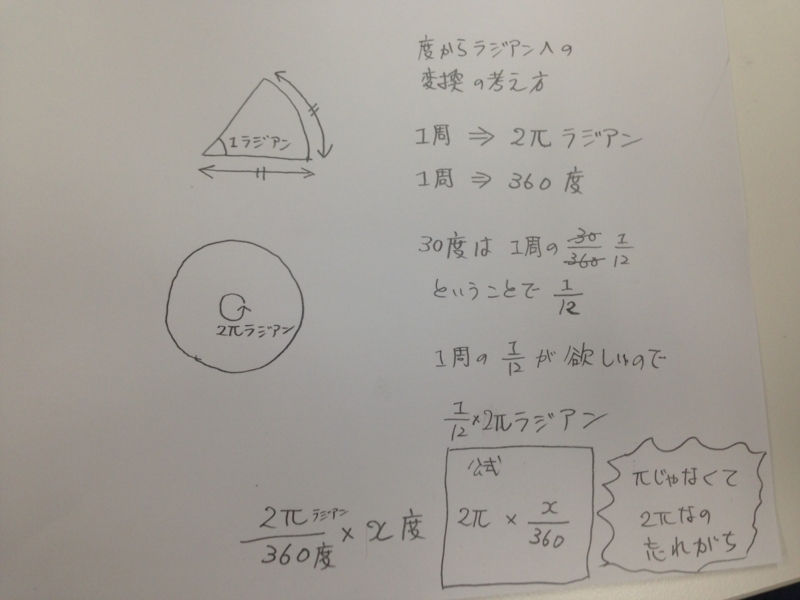 1ラジアン
2πラジアン
度からラジアンへの
変換の考え方
1周 ⇒ 2π ラジアン
1周 ⇒ 360 度
30度は 1周の 30/360 1/12
ということで 1/12
1周の 1/12 が欲しいので
1/12 × 2πラジアン
2πラジアン/360度 × x 度
公式
2π × x/360
πじゃなくて
2πなの
忘れがち